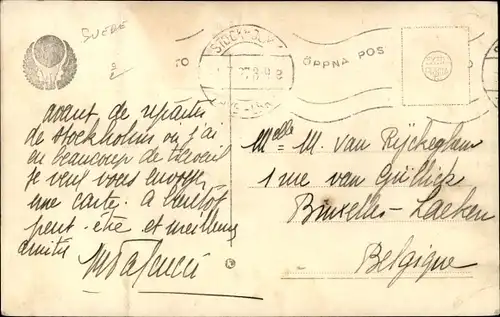 SUEDE
STOCKHOLM 1
27.8-9 8
ÖPPNA POS
avant de repartir
de Stockholm où j'ai
eu beaucoup de travail
je veux vous envoyer
une carte. à bientôt
peut-être et meilleures
amitiés
Melle M. van Rijckeghem
1 rue van Gullick
Bruxelles-Laeken
Belgique